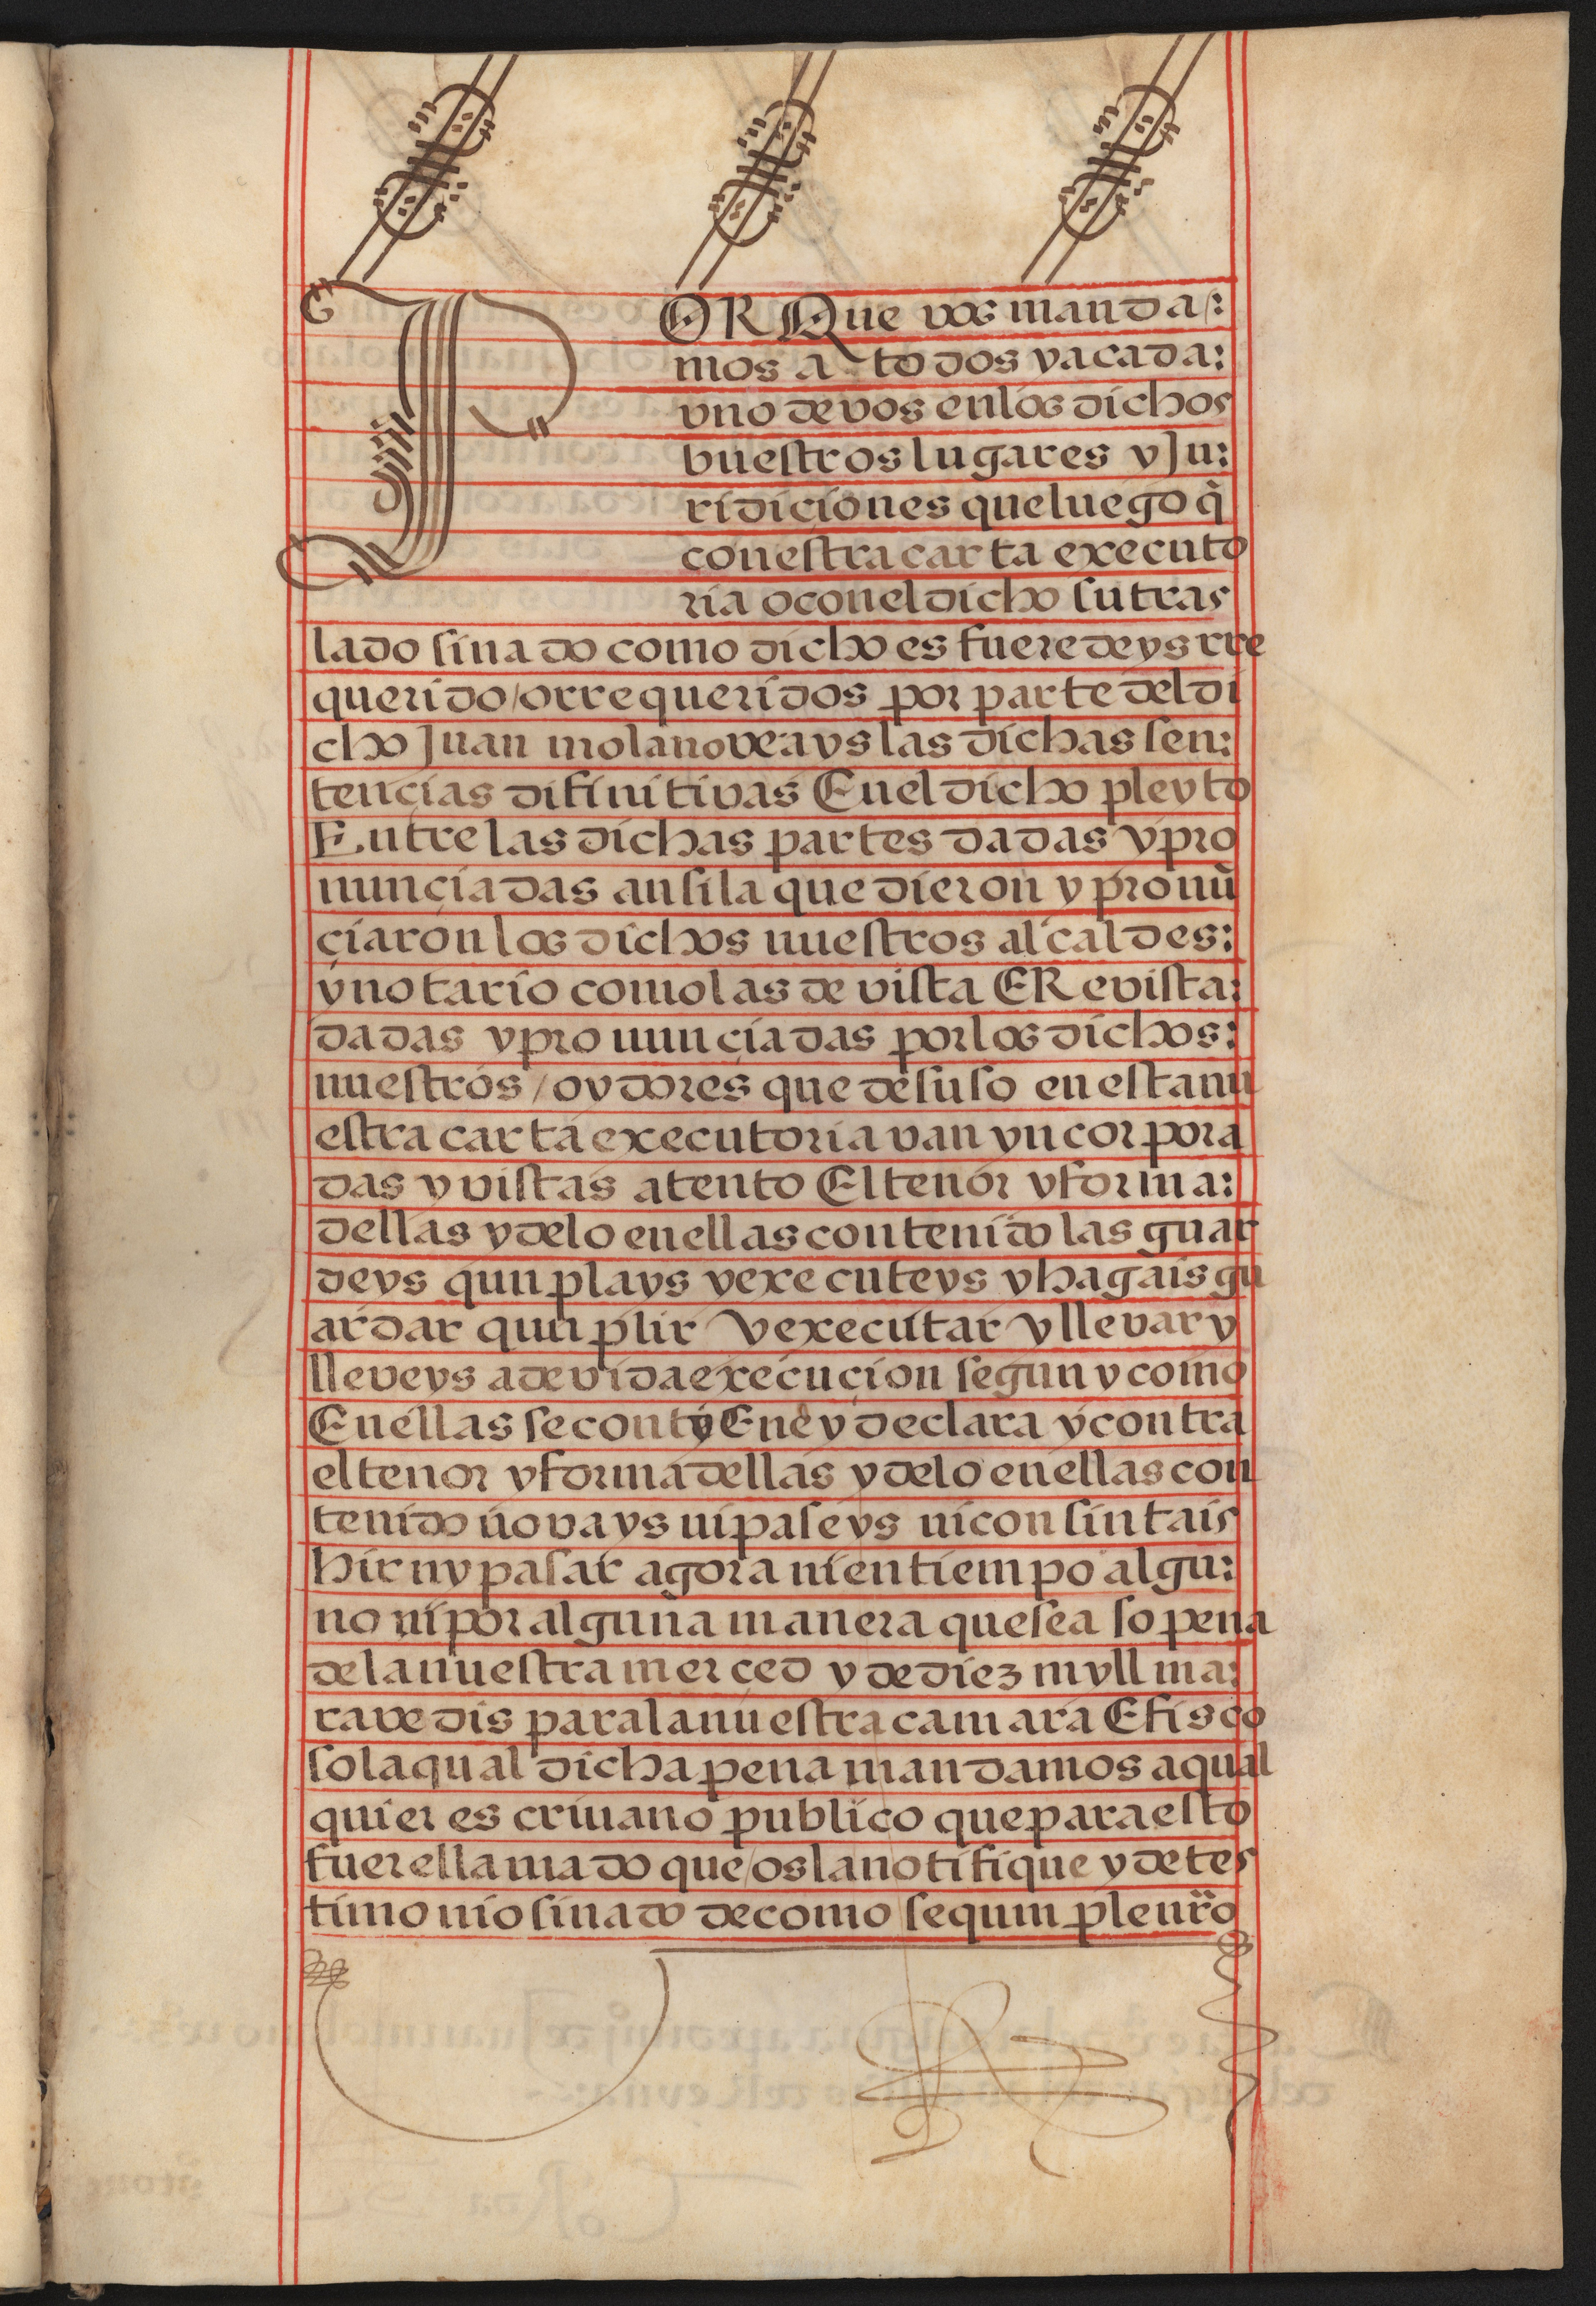 POR Que vos manda:
mos a todos y a cada:
vno de vos en los dichos
buestros lugares y Ju:
ridiciones que luego q̃
con estra carta executo
ria o con el dicho su tras
lado sinado como dicho es fueredeys rre
querido / o rrequeridos por parte del di
cho Juan molano veays las dichas sen:
tencias difinitivas En el dicho pleyto
Entre las dichas partes dadas y pro
nunçiadas ansi la que dieron y pronũ
çiaron los dichos nuestros alcaldes:
y notario como las de vista E Revista:
dadas y pronunçiadas por los dichos:
nuestros / oydores que de suso en esta nu
estra carta executoria van yncorpora
das y vistas atento El tenor y forma:
dellas y delo en ellas contenido las guar
deys qunplays y executeys y hagais gu
ardar qunplir y executar y llevar y
lleveys a devida execuçion segun y como
En ellas se contyEne y declara y contra
el tenor y forma dellas y delo en ellas con
tenido no vays ni paseys ni consintais
hir ny pasar agora ni en tiempo algu:
no ni por alguna manera que sea so pena
de la nuestra merçed y de diez myll ma:
ravedis para la nuestra camara E fisco
so la qual dicha pena mandamos a qual
quier escrivano publico que para esto
fuere llamado que / os la notifique y de tes
timonio sinado de como se qumple nr̃o